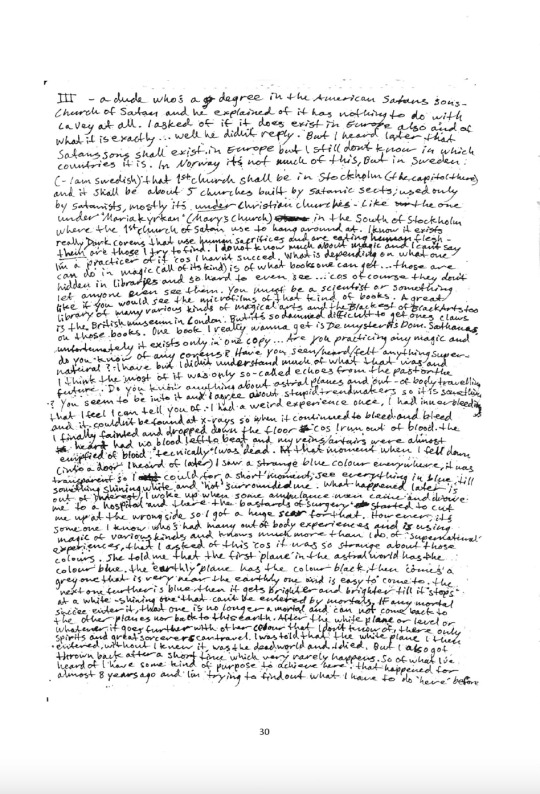 III - a dude who's a degree in the American Satans sons -
Church of Satan and he explained of it has nothing to do with
La Vey at all. I asked of if it does exist in Europe also and of
what it is exactly... well he didn't reply. But I heard later that
Satans song shall exist in Europe but I still dont know in which
countries it is. In Norway its not much of this, But in Sweden.
(- I am swedish) that 1st church shall be in Stockholm (the capitol there)
and it shall be about 5 churches built by satanic sects, used only
by satanists, mostly its under christian churches - Like the one
under "Mariakyrkan" (Marys church) in the South of Stockholm
where the 1st church of satan use to hang around at. I know it exists
really Dark covens that use human sacrifices and are eating human flesh -
them are those I try to find. I do not know much about magic and I cant say
Im a practicer of it cos I havn't succed. What is depending on what one
can do in magic (all of its kind) is of what books one can get... those are
hidden in libraries and so hard to even see... cos of course they dont
let anyone even see them. You must be a scientist or something
like if you would see the microfilms of that kind of books. A great
library of many various kinds of magical arts and the Blackest of Black Arts too
is the British museum in London. But its so damned difficult to get ones claws
on those books. One book I really wanna get is De mysteriis Dom. Sathanas
unfortunately it exists only in one copy... Are you practicing any magic and
do you know of any covens? Have you seen/heard/felt anything super-
natural? I have but I didnt understand much of what that was and
I think the most of it was only so-called echoes from the past or the
future. Do you know anything about astral planes and out-of body travelling
? You seem to be into it and I agree about stupid trendmakers so it is
that I feel I can tell you of. I had a weird experience once, I had inner bleeding
and it couldnt be found at x-rays so when it continued to bleed and bleed
I finally fainted and dropped down the floor cos I run out of blood. the
heart had no blood left to beat and my veins/artairs were almost
emptied of blood. "Tecnically" I was dead. At that moment when I fell down
(into a door I heard of later) I saw a strange blue colour everywhere, it was
transparent so I could for a short moment, see everything in blue, till
something shining white and "hot" surrounded me. What happened later is
out of interest, I woke up when some ambulance men came and drove
me to a hospital and there the bastards of surgery started to cut
me up at the wrong side so I got a huge scar for that. However, its
someone I know who's had many out of body experiences and is using
magic of various kinds and knows much more than I do, of "supernatural"
experiences, that I asked of this cos it was so strange about those
colours. She told me that the first "plane" in the astral world has the
colour blue. the earthly plane has the colour black, then comes a
grey one that is very near the earthly one and is easy to come to. the
next one further is blue then it gets brighter and brighter till it "stops"
at a white-shining one that cant be entered by mortals, If any mortal
enter it, that one is no longer a mortal and can not come back to
the other planes nor back to this earth. After the white plane or level or
whatever it goes further with other colours that I dont know of, there only
spirits and great sorcerers can travel. I was told that the white plane I then
entered, without I knew it, was the dead world and I died. But I also got
thrown back after a short time which very rarely happens. So of what Ive
heard of I have some kind of purpose to achieve here. that happened for
almost 8 years ago and Im trying to find out what I have to do "here" before
30